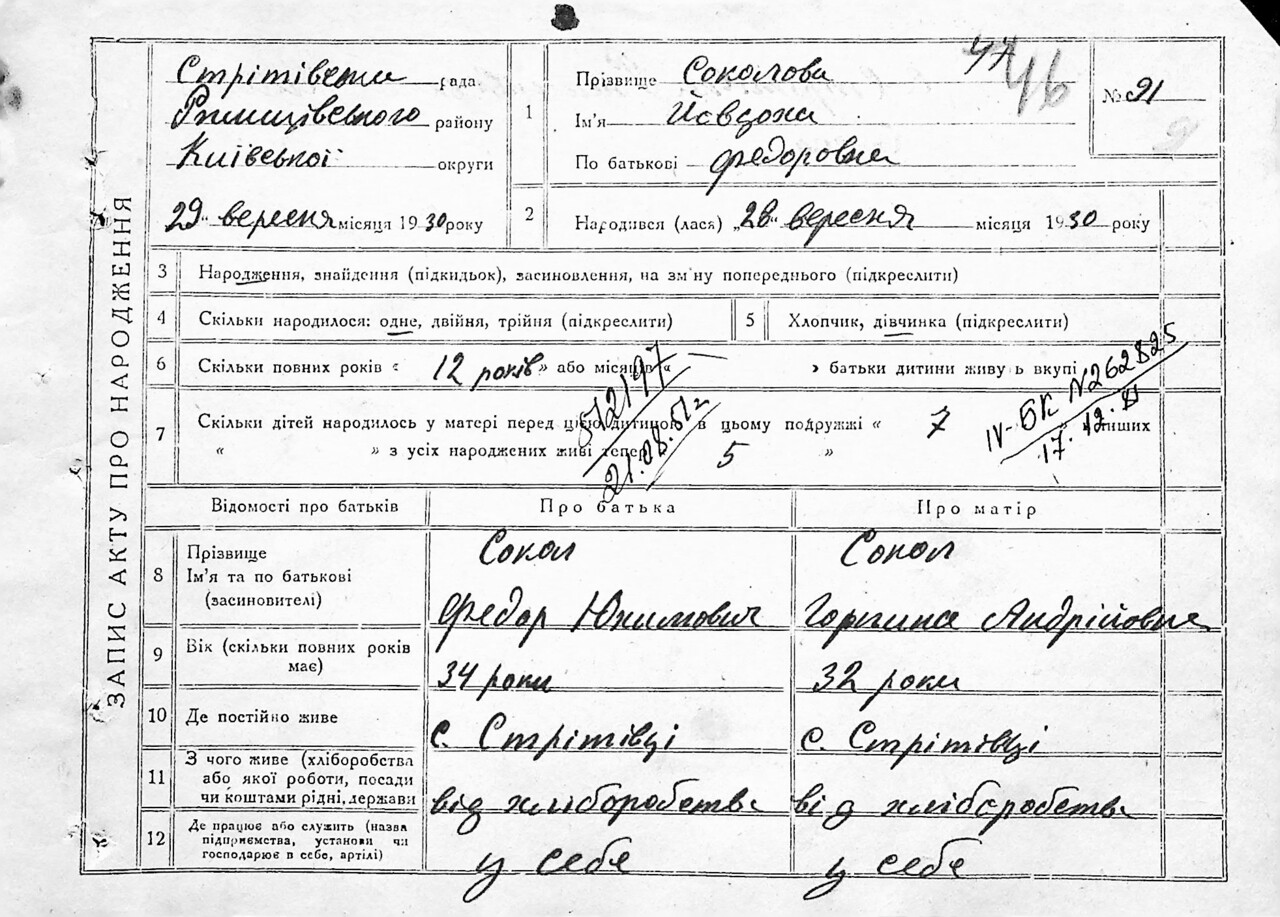 ЗАПИС АКТУ ПРО НАРОДЖЕННЯ
Стрітівська рада
Ржищівського району
Київської округи
29 вересня місяця 1930 року
1 Прізвище Соколова
Ім'я Йовдоха
По батькові Федоровна
47
46
№ 91
9
2 Народився (лася) „28" вересня місяця 1930 року
3 Народження, знайдення (підкидьок), засиновлення, на зм'ну попереднього (підкреслити)
4 Скільки народилося: одне, двійня, трійня (підкреслити)
5 Хлопчик, дівчинка (підкреслити)
6 Скільки повних років « 12 років » або місяців « — » батьки дитини живуть вкупі
7 Скільки дітей народилось у матері перед цією дитиною в цьому подружжі « 7 » інших
« » з усіх народжених живі тепер 5 »
512197
21.08.51г
IV-БК N262825
17.12.81
Відомості про батьків
Про батька
Про матір
8 Прізвище
Ім'я та по батькові
(засиновителі)
Сокол
Федор Юхимович
Сокол
Горпина Андрійовна
9 Вік (скільки повних років
має)
34 роки
32 роки
10 Де постійно живе
с. Стрітівці
с. Стрітівці
11 З чого живе (хліборобства
або якої роботи, посади
чи коштами рідні, держави
від хліборобства
від хліборобства
12 Де працює або служить (назва
підприємства, установи чи
господарює в себе, артілі)
у себе
у себе